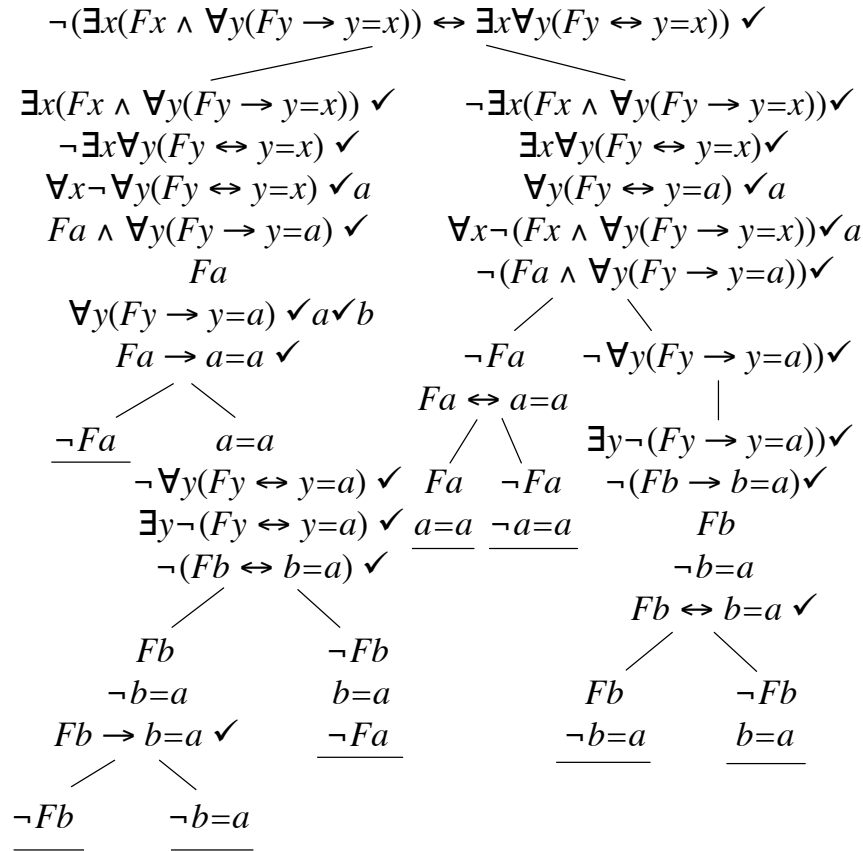 ¬(∃x(Fx ∧ ∀y(Fy → y=x)) ↔ ∃x∀y(Fy ↔ y=x)) ✓
∃x(Fx ∧ ∀y(Fy → y=x)) ✓
¬∃x∀y(Fy ↔ y=x) ✓
∀x¬∀y(Fy ↔ y=x) ✓a
Fa ∧ ∀y(Fy → y=a) ✓
Fa
∀y(Fy → y=a) ✓a✓b
Fa → a=a ✓
¬Fa
a=a
¬∀y(Fy ↔ y=a) ✓
∃y¬(Fy ↔ y=a) ✓
¬(Fb ↔ b=a) ✓
Fb
¬b=a
Fb → b=a ✓
¬Fb
¬b=a
¬Fb
b=a
¬Fa
¬∃x(Fx ∧ ∀y(Fy → y=x))✓
∃x∀y(Fy ↔ y=x)✓
∀y(Fy ↔ y=a) ✓a
∀x¬(Fx ∧ ∀y(Fy → y=x))✓a
¬(Fa ∧ ∀y(Fy → y=a))✓
¬Fa
Fa ↔ a=a
Fa
a=a
¬Fa
¬a=a
¬∀y(Fy → y=a))✓
∃y¬(Fy → y=a))✓
¬(Fb → b=a)✓
Fb
¬b=a
Fb ↔ b=a ✓
Fb
¬b=a
¬Fb
b=a